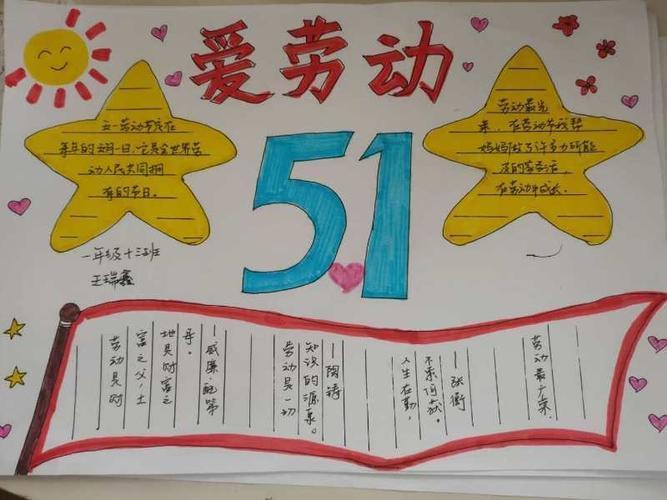 爱劳动
五一劳动节定在
每年的五月一日,它是全世界劳
动人民共同拥
有的节日。
51
劳动最光
荣,在劳动节我帮
妈妈做了许多力所能
及的家务活,
在劳动中成长。
一年级十三班
王瑞鑫
劳动是财
富之父,土
地是财富之
母。
—威廉·配第
劳动是一切
知识的源泉。
—陶铸
人生在勤,
不索何获。
—张衡
劳动最光荣.